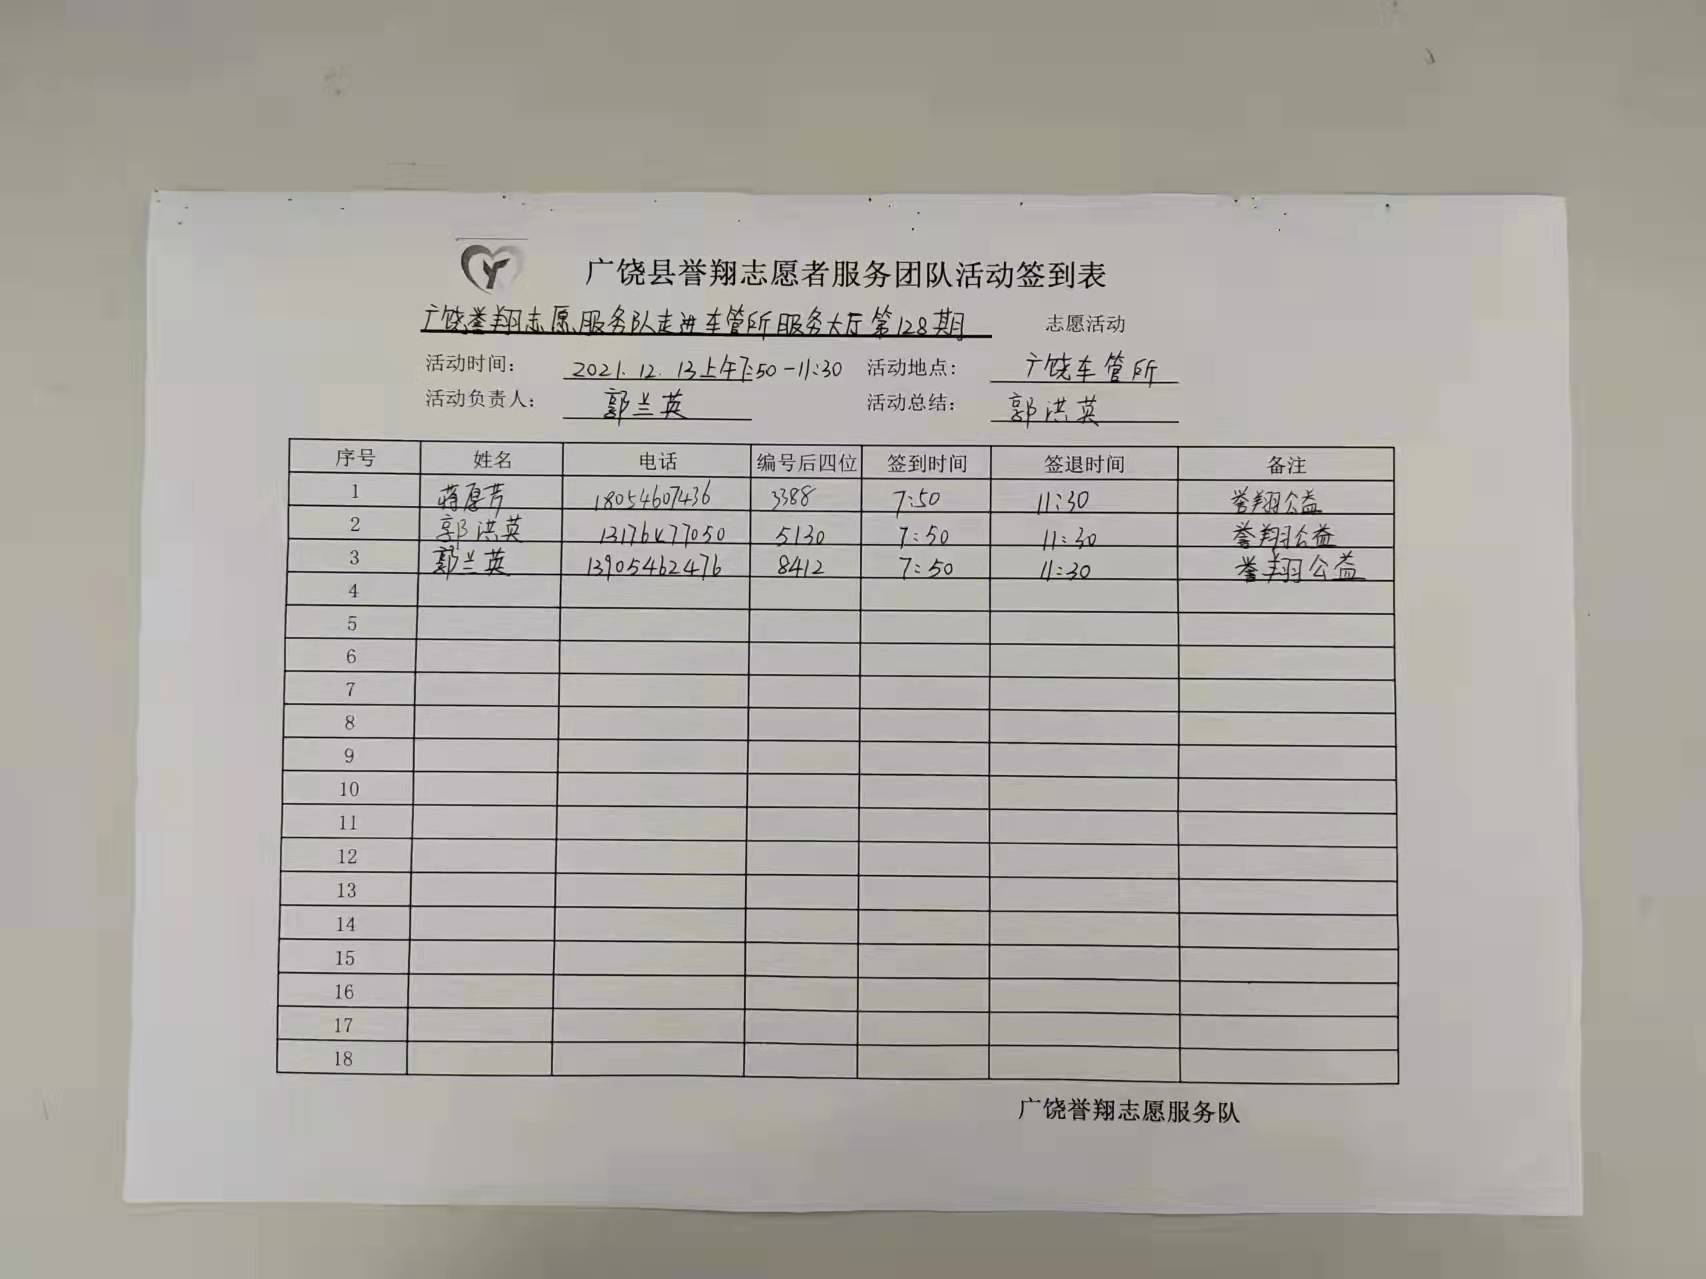 广饶县誉翔志愿者服务团队活动签到表
广饶誉翔志愿服务队走进车管所服务大厅第128期 志愿活动
活动时间: 2021.12.13上午7:50-11:30 活动地点: 广饶车管所
活动负责人: 郭兰英 活动总结: 郭洪英
序号 姓名 电话 编号后四位 签到时间 签退时间 备注
1 18054607436 3388 7:50 11:30 誉翔公益
2 郭洪英 5130 7:50 11:30 誉翔公益
3 郭兰英 13905462476 8412 7:50 11:30 誉翔公益
4
5
6
7
8
9
10
11
12
13
14
15
16
17
18
广饶誉翔志愿服务队